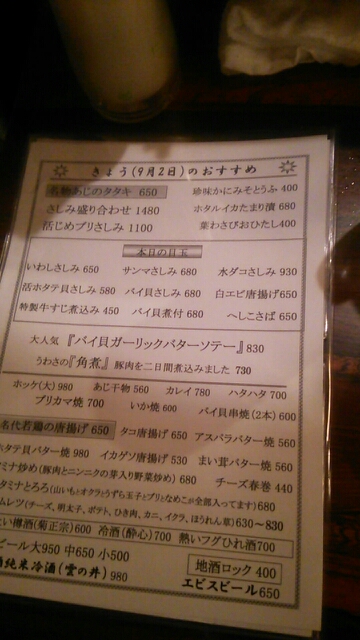 きょう(9月2日)のおすすめ
名物あじのタタキ 650 珍味かにみそとうふ 400
さしみ盛り合わせ 1480 ホタルイカたまり漬 680
活じめブリさしみ 1100 葉わさびおひたし400
本日の目玉
いわしさしみ 650 サンマさしみ 680 水ダコさしみ 930
活ホタテ貝さしみ 580 バイ貝さしみ 680 白エビ唐揚げ650
特製牛すじ煮込み 450 バイ貝煮付 680 へしこさば 650
大人気 『バイ貝ガーリックバターソテー』830
うわさの『角煮』 豚肉を二日間煮込みました 730
ホッケ(大) 980 あじ干物 560 カレイ 780 ハタハタ 700
ブリカマ焼 700 いか焼 600 バイ貝串焼(2本) 600
名代若鶏の唐揚げ 650 タコ唐揚げ 650 アスパラバター焼 560
ホタテ貝バター焼 980 イカゲソ唐揚げ 530 まい茸バター焼 560
タミナ炒め(豚肉とニンニクの芽入り野菜炒め) 680 チーズ春巻 440
タミナとろろ(山いもとオクラとうずら玉子とブリとなめこが全部入ってます) 680
ムレツ(チーズ、明太子、ポテト、ひき肉、カニ、イクラ、ほうれん草) 630～830
樽酒(菊正宗)600 冷酒(酔心)700 熱いフグひれ酒700
ビール大950 中650 小500 地酒ロック 400
純米冷酒(雲の井) 980 エビスビール650